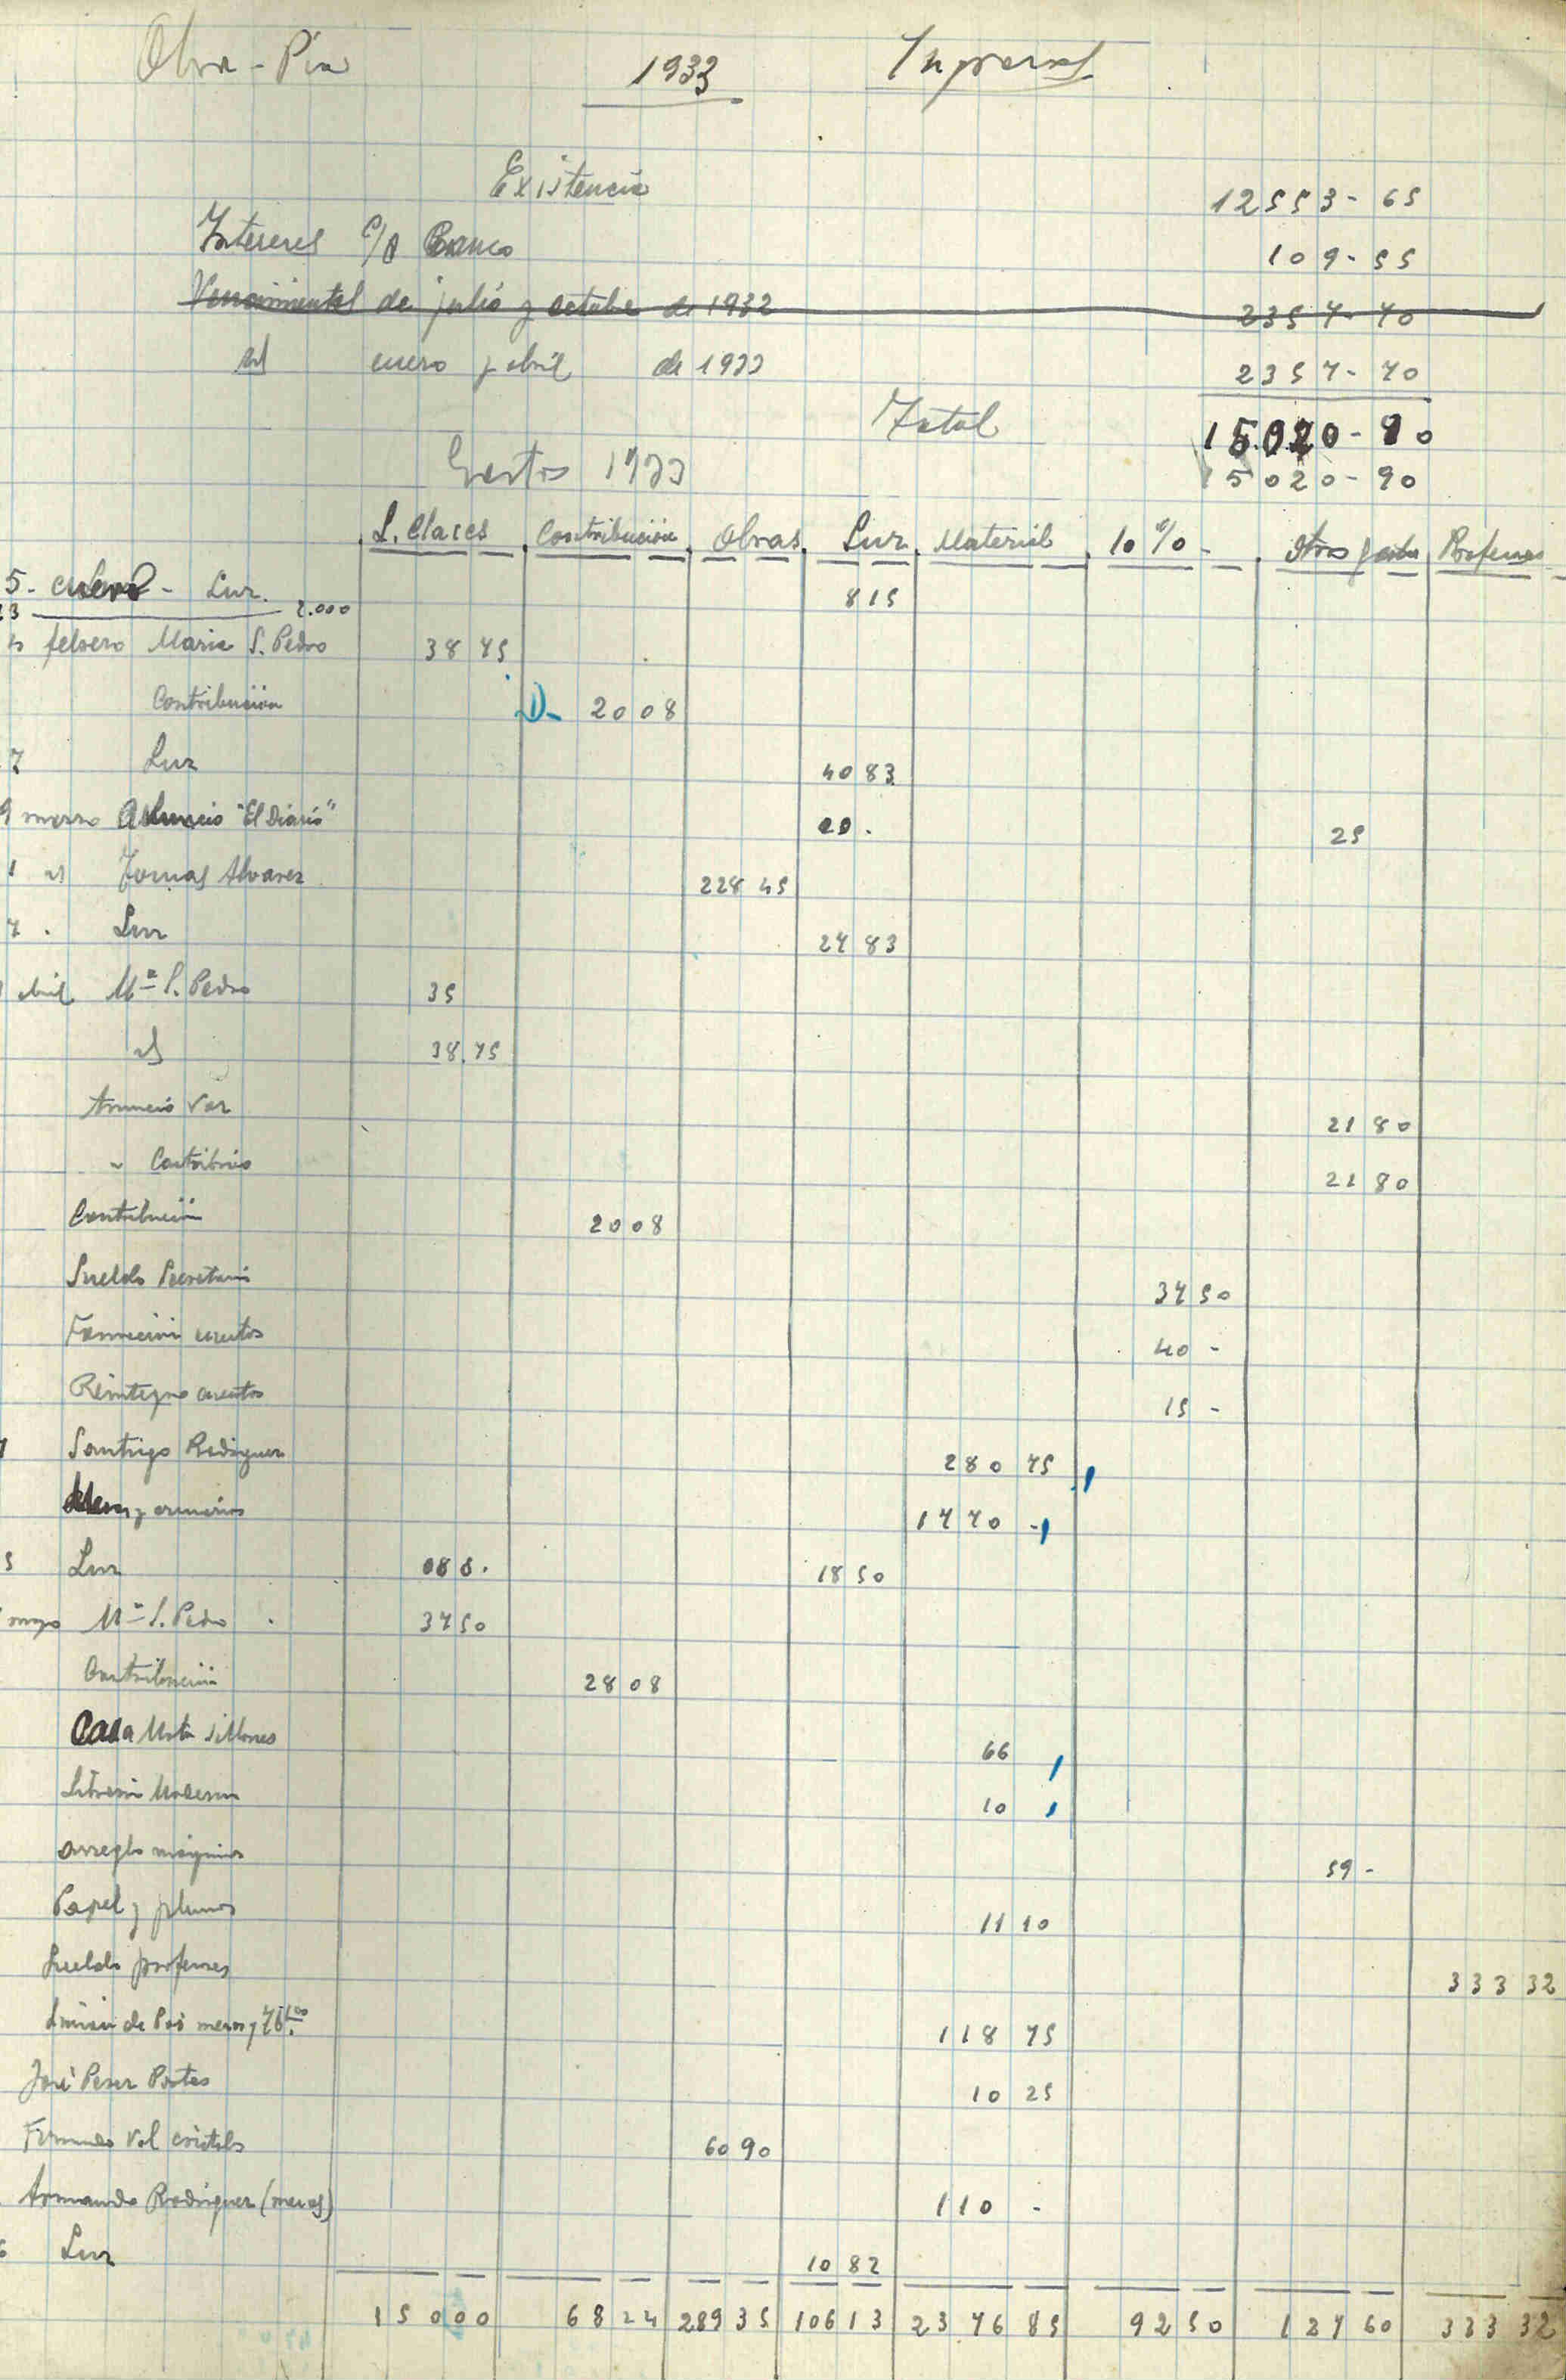 Obra-Pía 1933 Ingresos
Existencia 12553-65
Intereses c/a Banco 109-55
Vencimientos de julio y octubre de 1932 2357-70
id enero y abril de 1933 2357-70
Total 15020-90
15020-90
Gastos 1933
L. Clases Contribución Obras Luz Material 10% Otros gastos Profesores
5- enero - Luz. 8 15
2.000
febrero Maria S. Pedro 38 75
Contribución 20 08
7 Luz 40 83
9 marzo Anuncio "El Diario" 25
1 id Tomas Alvarez 228 45
7 . Luz 27 83
abril Mª S. Pedro 35
id 38.75
Anuncio Voz 21 80
" Contribución 21 80
Contribución 20 08
Sueldo Secretario 37 50
Formación cuentas 40 -
Reintegro cuentas 15 -
Santiago Rodriguez 280 75
y armarios 1770 -
5 Luz 18 50
mayo Mª S. Pedro 37 50
Contribución 28 08
Casa sillones 66
Libreria Moderna 10
Arreglo máquinas 59 -
Papel y plumas 11 10
Sueldo profesores 333 32
de mesas y 118 75
José Perez Portes 10 25
Val cristales 60 90
Armando Rodriguez (mesas) 110 -
6 Luz 10 82
150 00 68 24 289 35 106 13 2376 85 92 50 127 60 333 32